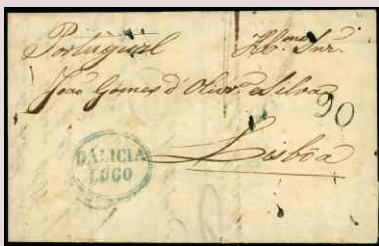 Portugual Illmo. Snr.
João Gomes d'Olivra. e Silva
90
Lisboa
GALICIA
LUGO